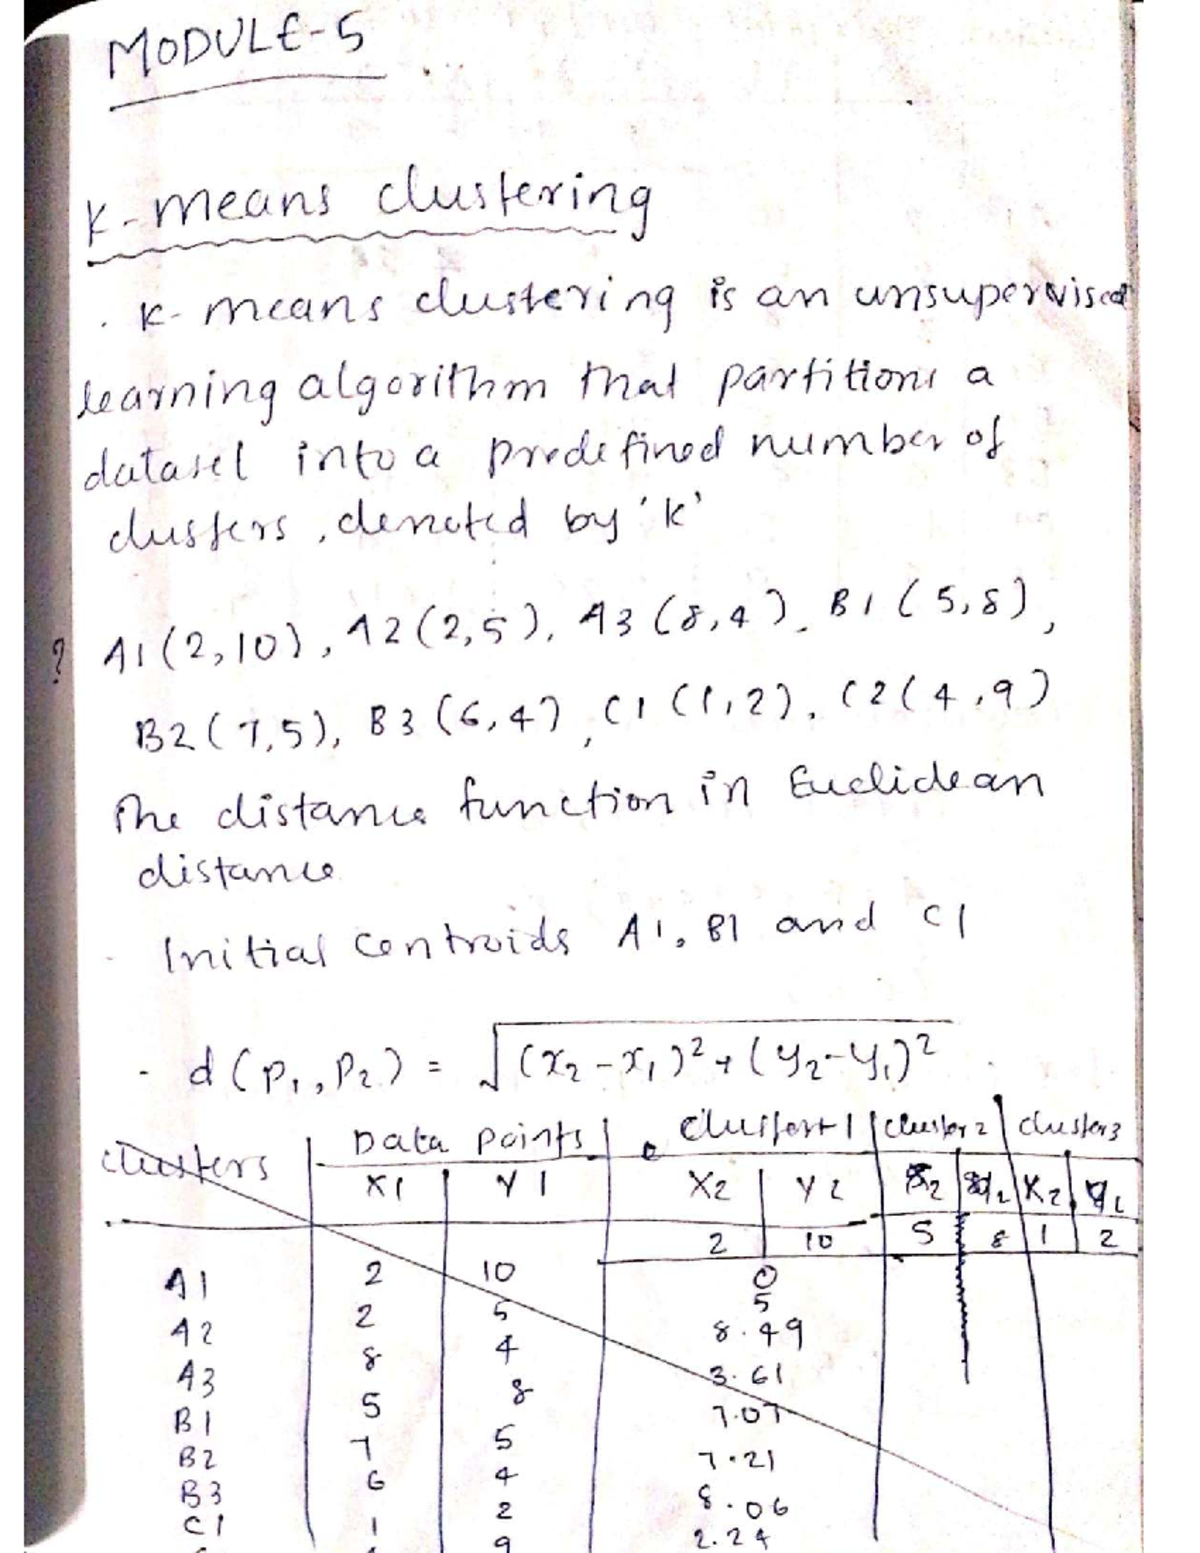 MODULE-5
K-means clustering
. K-means clustering is an unsupervised
learning algorithm that partitions a
dataset into a predefined number of
clusters, denoted by 'K'
? A1(2,10), A2(2,5), A3(8,4), B1(5,8),
B2(7,5), B3(6,4), C1(1,2), C2(4,9)
The distance function in Euclidean
distance
- Initial Centroids A1, B1 and C1
- d(P₁, P₂) = √(x₂-x₁)²+(y₂-y₁)²
clusters Data points cluster 1 cluster 2 cluster 3
X1 Y1 X2 Y2 X2 Y2 X2 Y2
2 10 5 8 1 2
A1 2 10 0
A2 2 5 5
A3 8 4 8.49
B1 5 8 3.61
B2 7 5 7.07
B3 6 4 7.21
C1 1 2 8.06
9 2.24